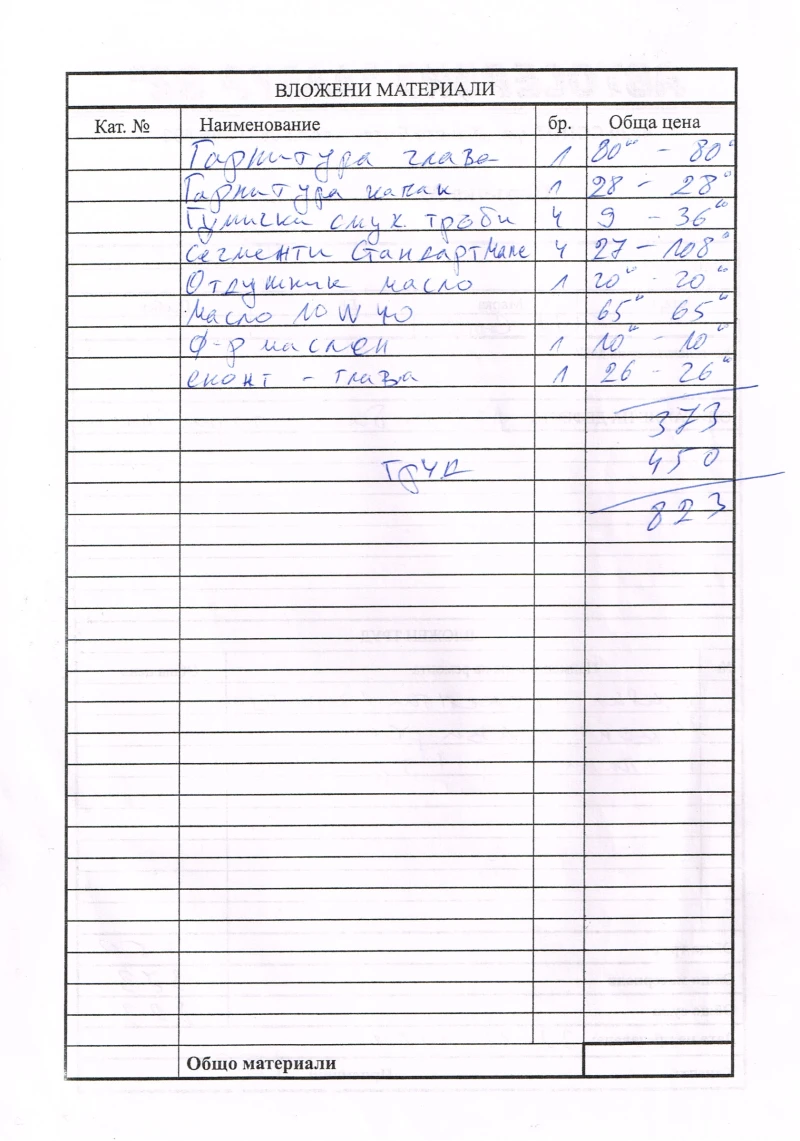 ВЛОЖЕНИ МАТЕРИАЛИ
Кат. № Наименование бр. Обща цена
Гарнитура глава 1 80 - 80
Гарнитура капак 1 28 - 28
Гумички смук тръби 4 9 - 36
Сегменти Стандарт Mahle 4 27 - 108
Отдушник масло 1 20 - 20
Масло 10W40 65 65
Ф-р маслен 1 10 - 10
1 26 - 26
373
труд 450
823
Общо материали